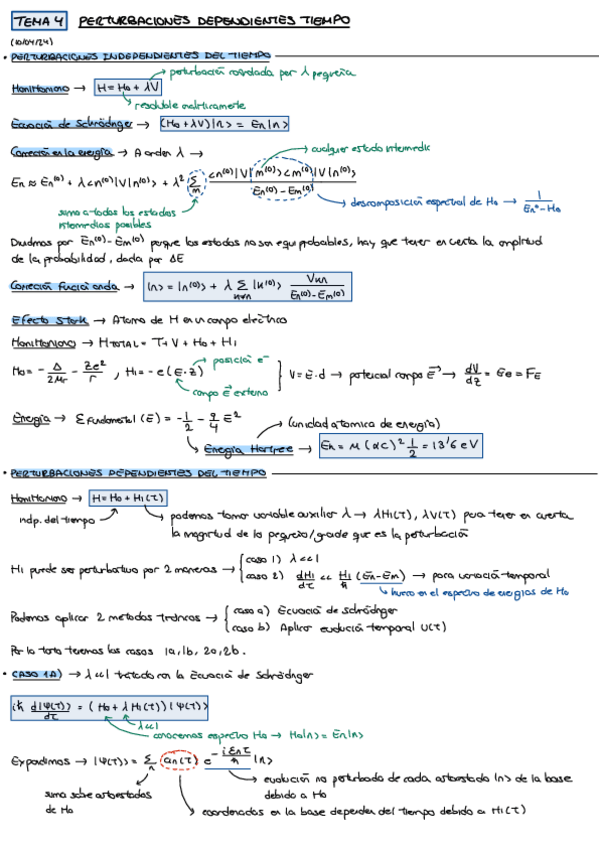 TEMA 4 PERTURBACIONES DEPENDIENTES TIEMPO
(10/04/24)
• PERTURBACIONES INDEPENDIENTES DEL TIEMPO
perturbación controlada por λ pequeña
Hamiltoniano → H = H₀ + λV
resoluble analíticamente
Ecuación de Schrödinger → (H₀ + λV)|n> = En|n>
Corrección en la energía → A orden λ →
cualquier estado intermedio
En ≈ En⁽⁰⁾ + λ<n⁽⁰⁾|V|n⁽⁰⁾> + λ² Σm <n⁽⁰⁾|V|m⁽⁰⁾><m⁽⁰⁾|V|n⁽⁰⁾> / En⁽⁰⁾ - Em⁽⁰⁾
suma a todos los estados intermedios posibles
descomposición espectral de H₀ → 1 / En⁰ - H₀
Dividimos por En⁽⁰⁾ - Em⁽⁰⁾ porque los estados no son equiprobables, hay que tener en cuenta la amplitud
de la probabilidad, dada por ΔE
Corrección función onda → |n> = |n⁽⁰⁾> + λ Σ |k⁽⁰⁾> Vkn / En⁽⁰⁾ - Em⁽⁰⁾
Efecto Stark → Átomo de H en un campo eléctrico
Hamiltoniano → HTOTAL = T + V + H₀ + H₁
H₀ = - Δ/2μr - Ze²/r , H₁ = - e (E·z)
posición e⁻
campo E⃗ externo
V = E·d → potencial campo E⃗ → dV/dz = Ee = FE
Energía → E fundamental (E) = - 1/2 - 9/4 E²
(unidad atómica de energía)
Energía Hartree → En = μ (αc)² 1/2 = 13'6 eV
• PERTURBACIONES DEPENDIENTES DEL TIEMPO
Hamiltoniano → H = H₀ + H₁(τ)
indp. del tiempo
podemos tomar variable auxiliar λ → λH₁(τ), λV(τ) para tener en cuenta
la magnitud de lo pequeño/grande que es la perturbación
H₁ puede ser perturbativo por 2 maneras →
caso 1) λ<<1
caso 2) dH₁/dτ << H₁/ħ (En-Em) → para variación temporal
hueco en el espectro de energías de H₀
Podemos aplicar 2 métodos teóricos →
caso a) Ecuación de Schrödinger
caso b) Aplicar evolución temporal U(τ)
Por lo tanto tenemos los casos 1a, 1b, 2a, 2b.
• CASO 1A) → λ<<1 tratado con la Ecuación de Schrödinger
iħ d|Ψ(τ)>/dτ = (H₀ + λH₁(τ))|Ψ(τ)>
λ<<1
conocemos espectro H₀ → H₀|n> = En|n>
Expandimos → |Ψ(τ)> = Σn an(τ) e^(- iEnτ/ħ) |n>
suma sobre autoestados de H₀
evolución no perturbada de cada autoestado |n> de la base
debido a H₀
coordenadas en la base dependen del tiempo debido a H₁(τ)